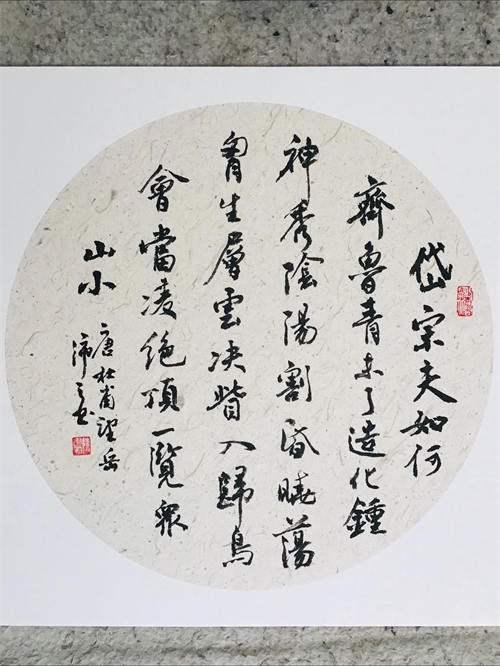 岱宗夫如何
齊魯青未了造化鍾
神秀陰陽割昏曉蕩
胷生層雲决眥入歸鳥
會當凌絕頂一覽衆
山小
唐杜甫望岳